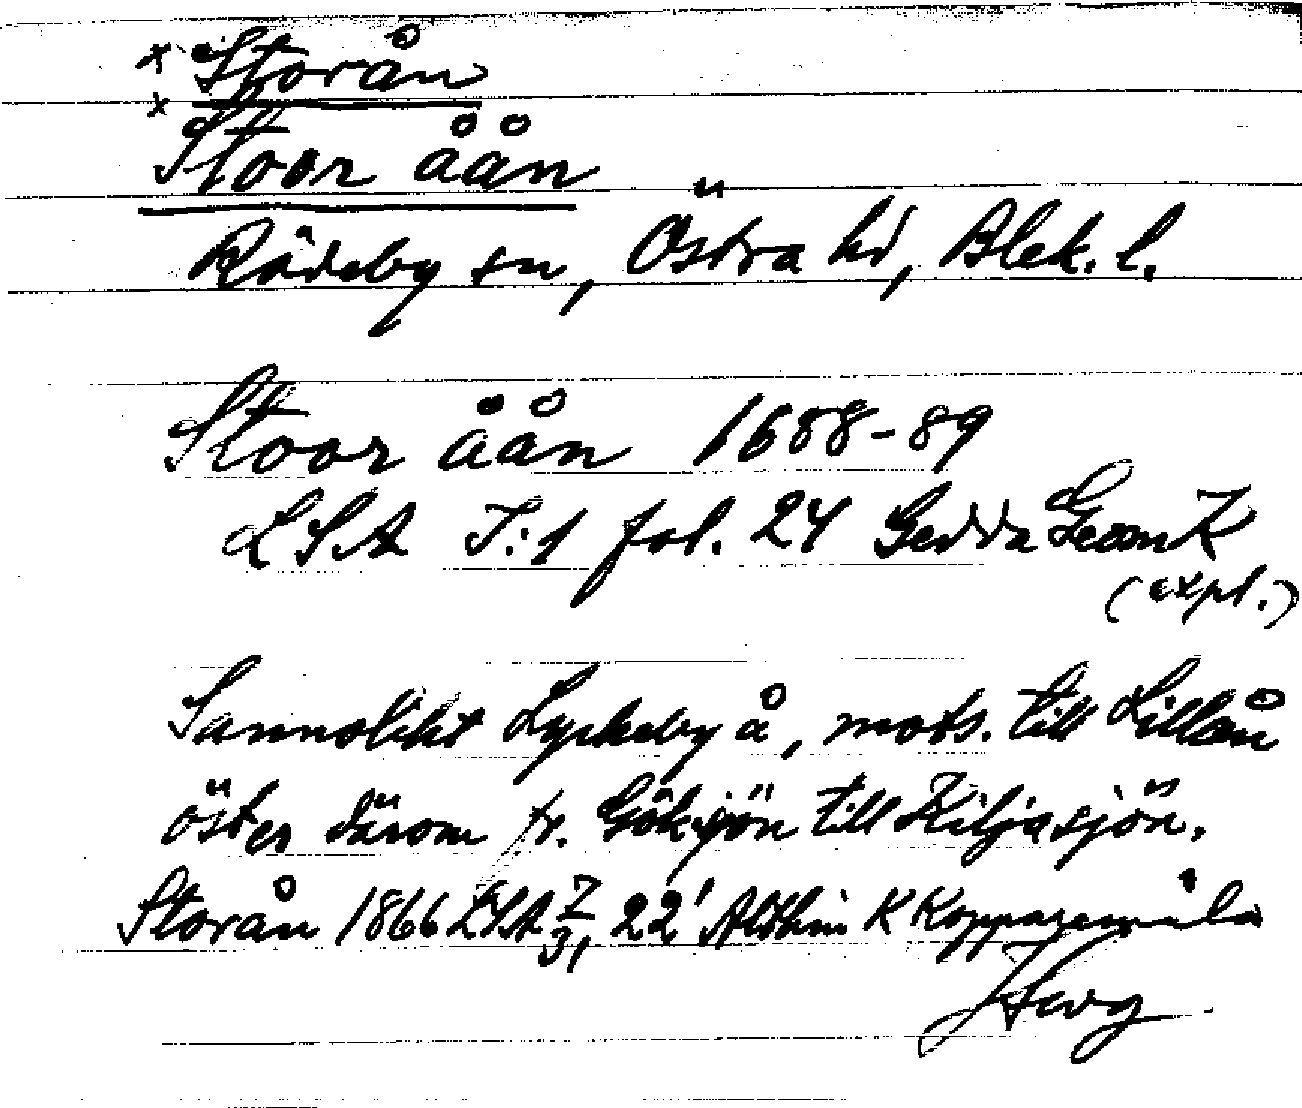 x Storån
x Stoor åån
Rödeby sn, Östra hd, Blek. l.
Stoor åån 1688-89
LSA I:1 fol. 24 Gedda GeomK
(expl.)
Sannolikt Lyckeby å, mots. till Lillån
öster därom fr. Göksjön till Kiljasjön.
Storån 1866 LSA Z 3, 22' K Kopparemåla